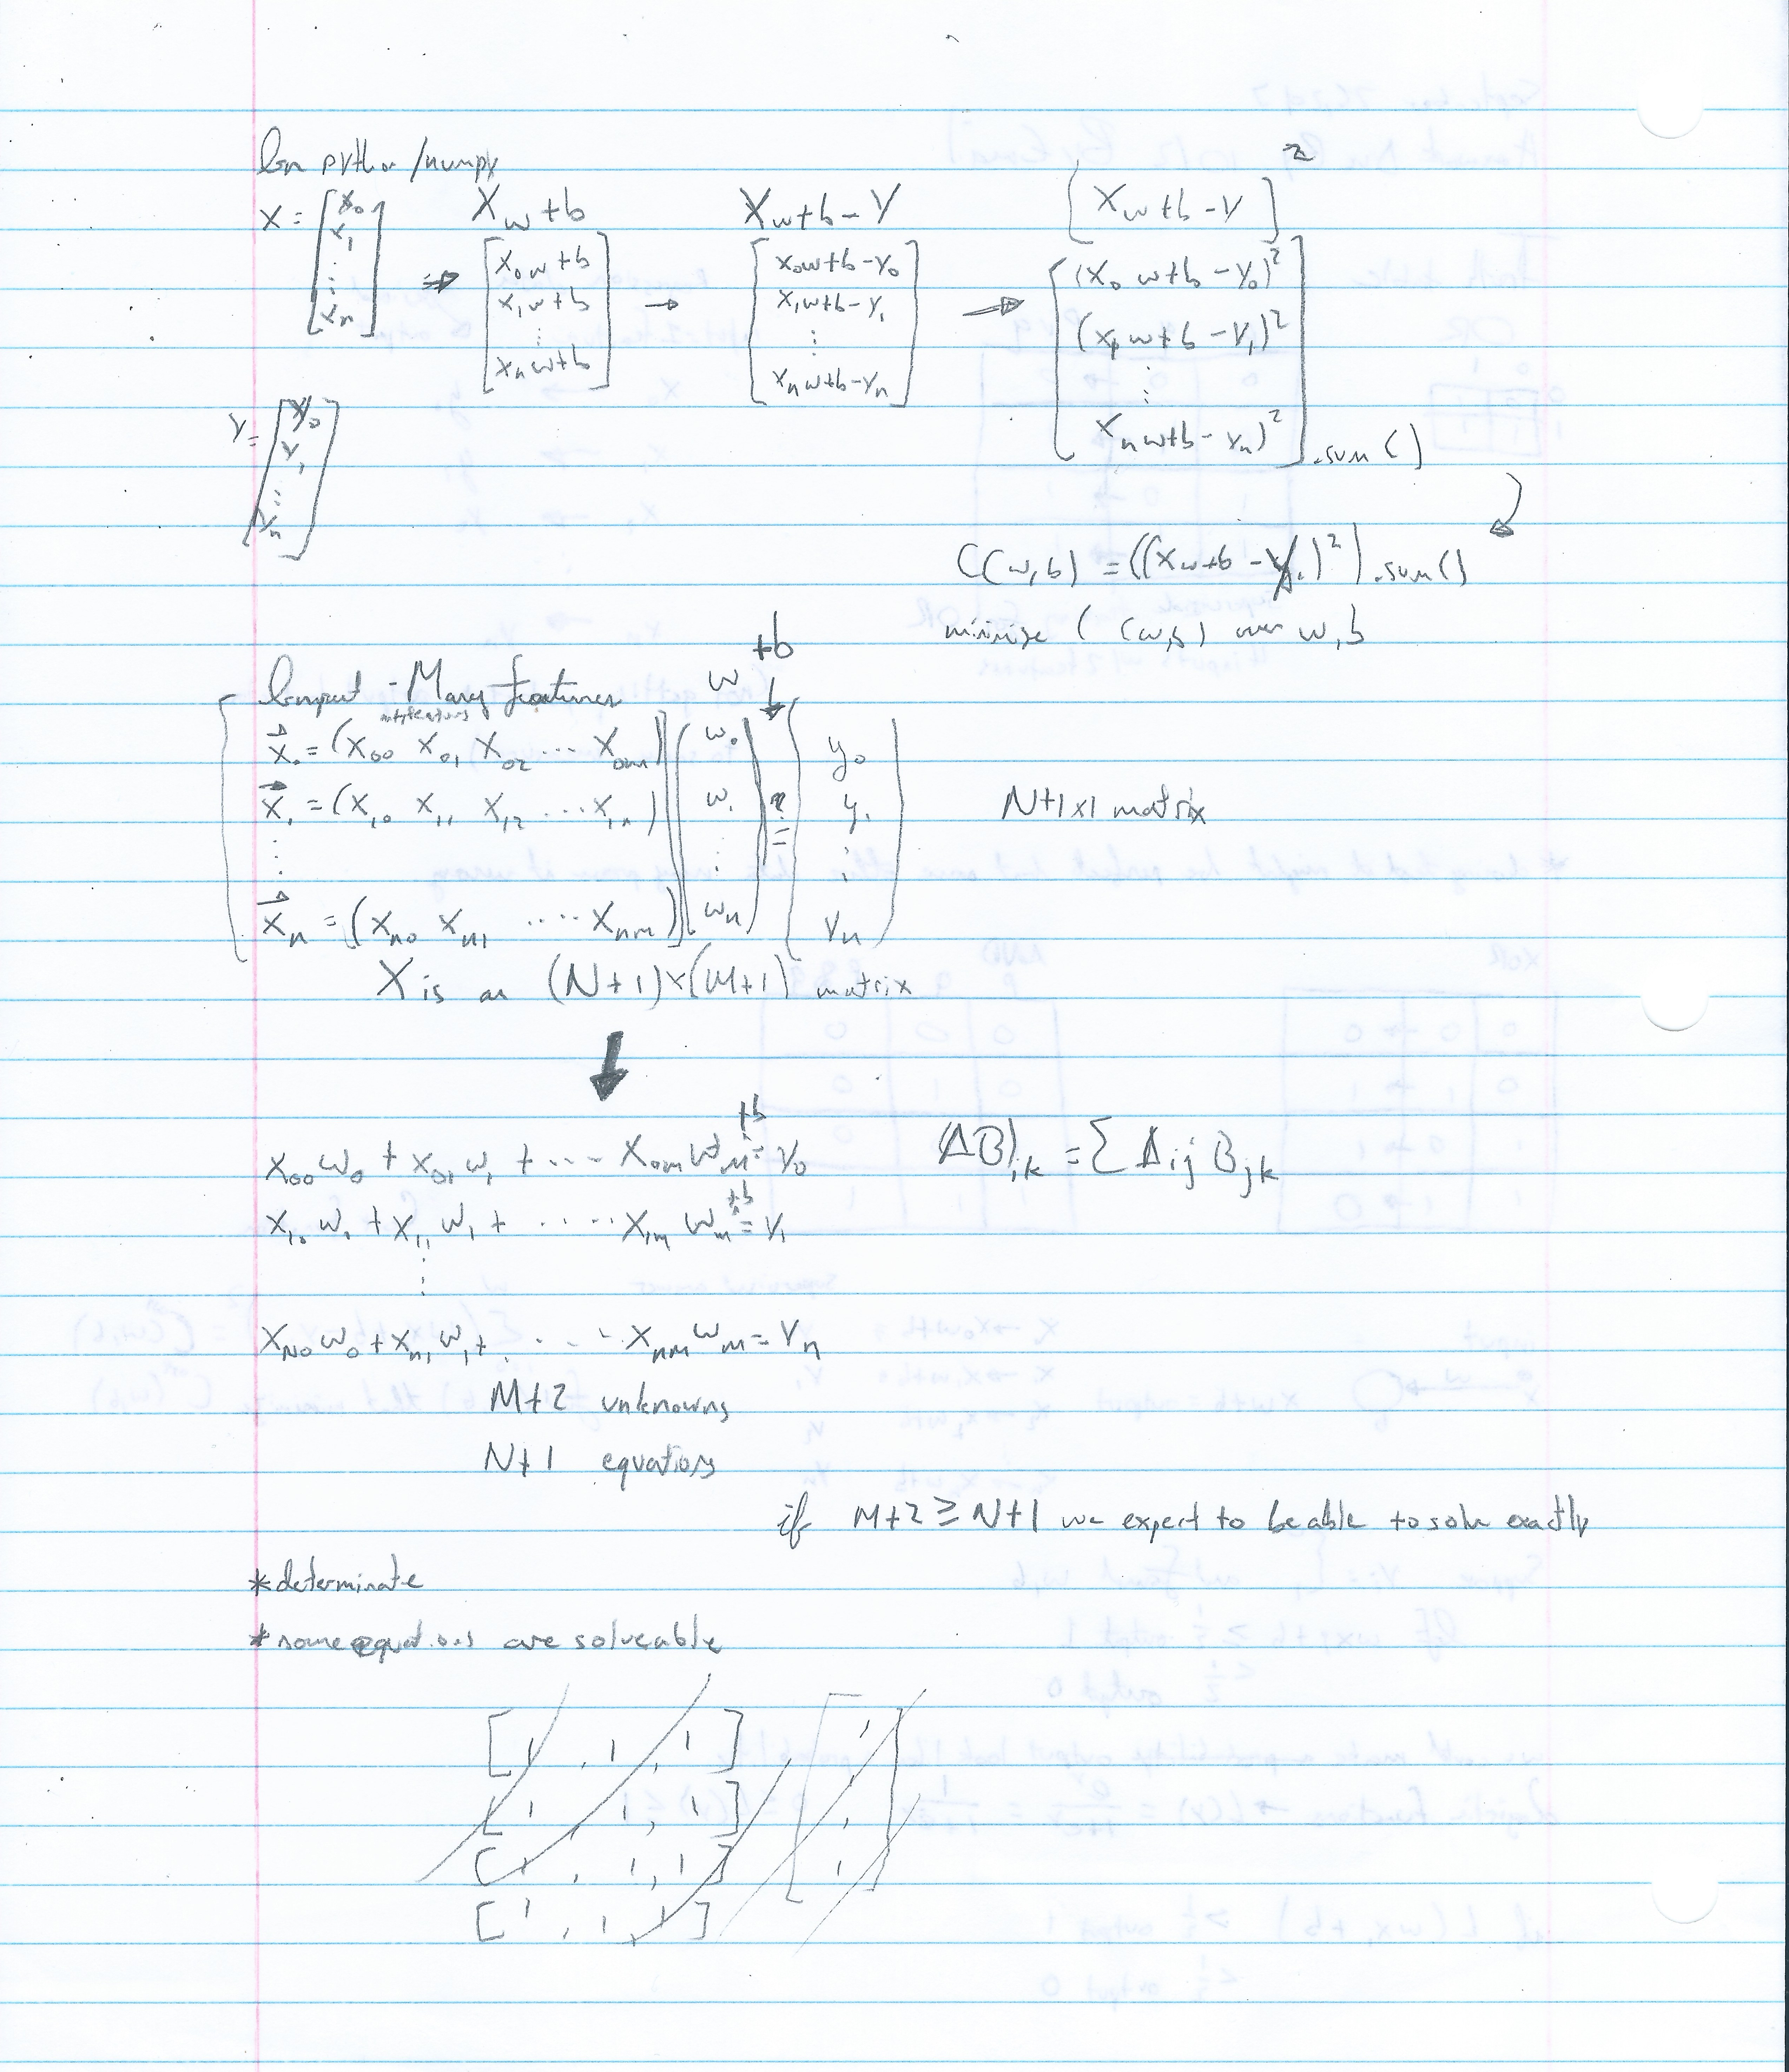 In python/numpy
X = [x₀ x₁ ⋮ xₙ] ⇒ Xw+b [x₀w+b x₁w+b ⋮ xₙw+b] → Xw+b-Y [x₀w+b-y₀ x₁w+b-y₁ ⋮ xₙw+b-yₙ] → [Xw+b-Y]² [(x₀w+b-y₀)² (x₁w+b-y₁)² ⋮ xₙw+b-yₙ)²].sum()
Y = [y₀ y₁ ⋮ yₙ]
C(w,b) = ((Xw+b-Y)²).sum()
minimize C(w,b) over w,b
Input - Many features w +b
x⃗₀ = (x₀₀ x₀₁ x₀₂ ⋯ x₀ₘ) w₀ y₀
x⃗₁ = (x₁₀ x₁₁ x₁₂ ⋯ x₁ₙ) w₁ ?= y₁ N+1x1 matrix
⋮ ⋮ ⋮
x⃗ₙ = (xₙ₀ xₙ₁ ⋯ xₙₘ) wₙ yₙ
X is an (N+1)×(M+1) matrix
x₀₀w₀ + x₀₁w₁ + ⋯ x₀ₘwₘ +b = y₀ (AB)ᵢₖ = Σ Aᵢⱼ Bⱼₖ
x₁₀w₀ + x₁₁w₁ + ⋯ x₁ₘwₘ +b = y₁
⋮
xₙ₀w₀ + xₙ₁w₁ + ⋯ xₙₘwₘ = yₙ
M+2 unknowns
N+1 equations
if M+2 ≥ N+1 we expect to be able to solve exactly
*determinate
*some equations are solveable
[1 , 1 , 1]
[1 1 , 1]
[1 , 1 , 1]
[1 , 1 , 1]